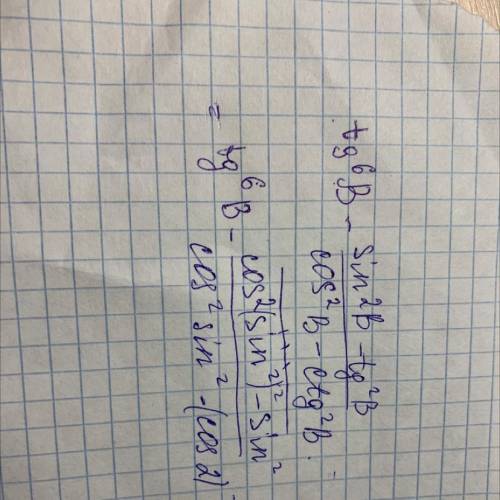 tg⁶B - (sin²B - tg²B)/(cos²B - ctg²B)
= tg⁶B - (cos²(sin²)² - sin²)/(cos² sin² - (cos²)